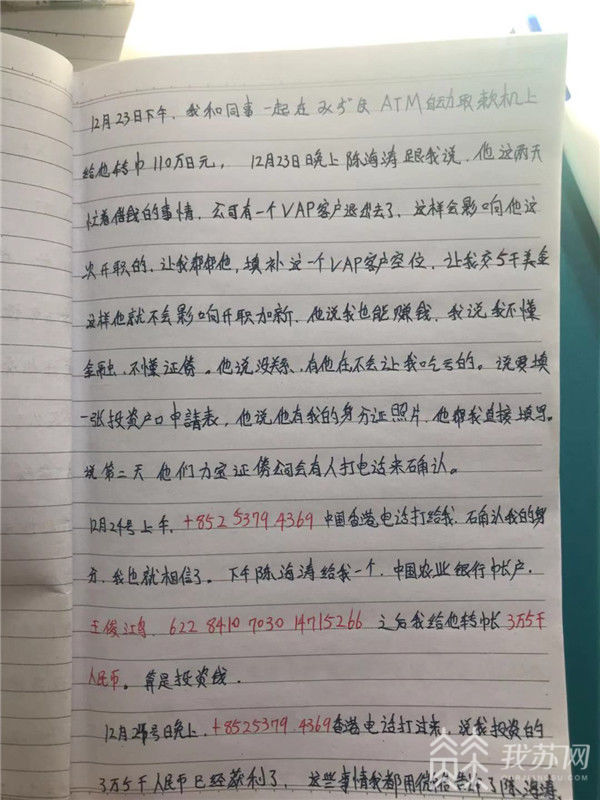 12月23日下午、我和同事一起在 ATM自动取款机上
给他转巾110万日元， 12月23日晚上陈海涛跟我说，他这两天
忙着借钱的事情、公司有一个VAP客户退出去了、这样会影响他这
次升职的、让我帮帮他，填补这一个VAP客户空位、让我交5千美金
这样他就不会影响升职加新、他说我也能赚钱、我说我不懂
金融、不懂证债。他说没关系、有他在不会让我吃亏的。说要填
一张投资户口申請表，他说他有我的身分证照片、他帮我直接填写。
说第二天他们力宝证债公司会有人打电话来确认。
12月24号上午、+852 5379 4369 中国香港电话打给我、确认我的身
分、我也就相信了。下午陈海涛给我一个、中国农业银行帐户、
王俊江 622 8410 7030 14715266 之后我给他转帐3万5千
人民币。算是投资钱.
12月 号日晚上、+8525379 4369香港电话打过来、说我投资的
3万5千人民币已经获利了、这些事情我都用微信告诉了陈海涛
我苏网